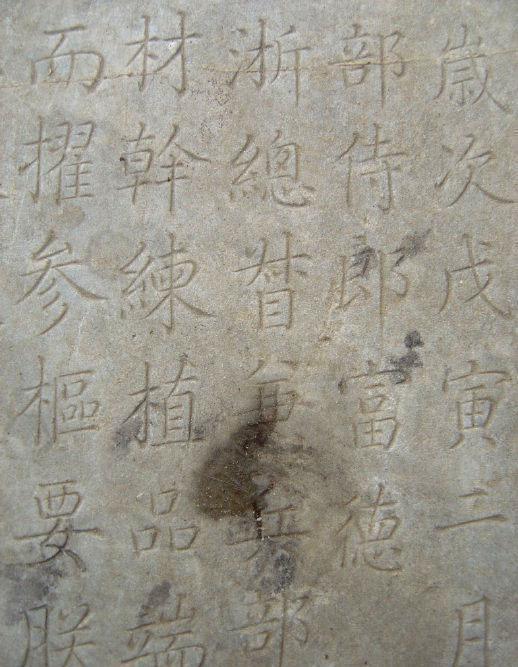 歳次戊寅二月
部侍郎富德
浙總督兼兵部
材幹練植品端
而擢参樞要朕